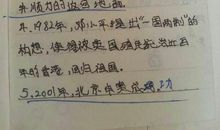 外顺力的返回地面。
4. 1982年,邓小平提出"一国两制"的
构想,使被英国殖民统治近百
年的香港,回归祖国。
5. 2001年,北京申奥成功